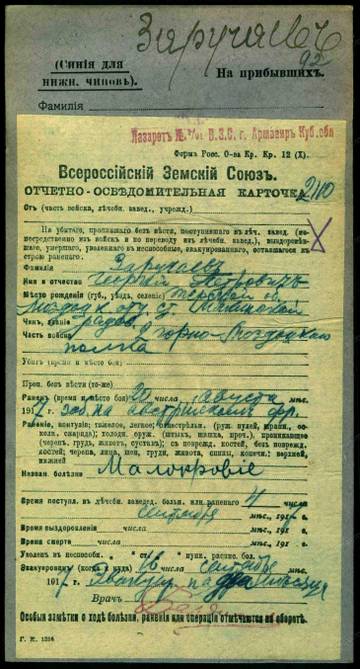 Заручаевъ
92
(Синія для
нижн. чиновъ).
На прибывшихъ.
Фамилія
Лазаретъ № В.З.С. г. Армавир Куб. обл
Форма Росс. О-ва Кр. Кр. 12 (X).
Всероссійскій Земскій Союзъ.
ОТЧЕТНО-ОСВѢДОМИТЕЛЬНАЯ КАРТОЧКА
Отъ (часть войска, лѣчебн. завед., учрежд.)
На убитаго, пропавшаго безъ вѣсти, поступившаго въ леч. завед. (не-
посредственно изъ войскъ и по переводу изъ лѣчебн. завед.), выздоровѣв-
шаго, умершаго, уволеннаго въ неспособные, эвакуированнаго, оставшагося въ
строю раненаго.
Фамилія Заручаевъ
Имя и отчество Георгій Петровичъ
Мѣсто рожденія (губ., уѣзд, селеніе) Терской об.
Моздок. ст.
Чинъ, званіе рядов.
Часть войска Горно-Моздокскаго
полка
Убитъ (время и мѣсто боя)
Проп. безъ вѣсти (то-же)
Раненъ (время и мѣсто боя) числа августа мѣс.
191 7 г. заб. на австрійском фр.
Раненіе, контузія: тяжелое, легкое; огнестрѣльн. (руж. пулей, шрапн., ос-
колк. снаряда); холодн. оруж. (штык, шашка, проч.), проникающее
(черепъ, грудь, животъ, суставъ); съ поврежд. костей, безъ поврежд.
костей; черепа, лица, шеи, груди, живота, спины, конечн.: верхней,
нижней
Назван. болѣзни Малокровіе
Время поступл. въ лѣчебн. заведен. больн. или раненаго 4 числа
сентября мѣс., 191 г.
Время выздоровленія числа мѣс., 191 г.
Время смерти числа мѣс., 191 г.
Уволенъ въ неспособн. пункт. распис. бол.
Эвакуированъ (когда и куда) 16 сентября
191 7 Эвакуир. на два мѣсяца
Врачъ
Особыя замѣтки о ходѣ болѣзни, раненія или операціи отмѣчаются на оборотѣ.